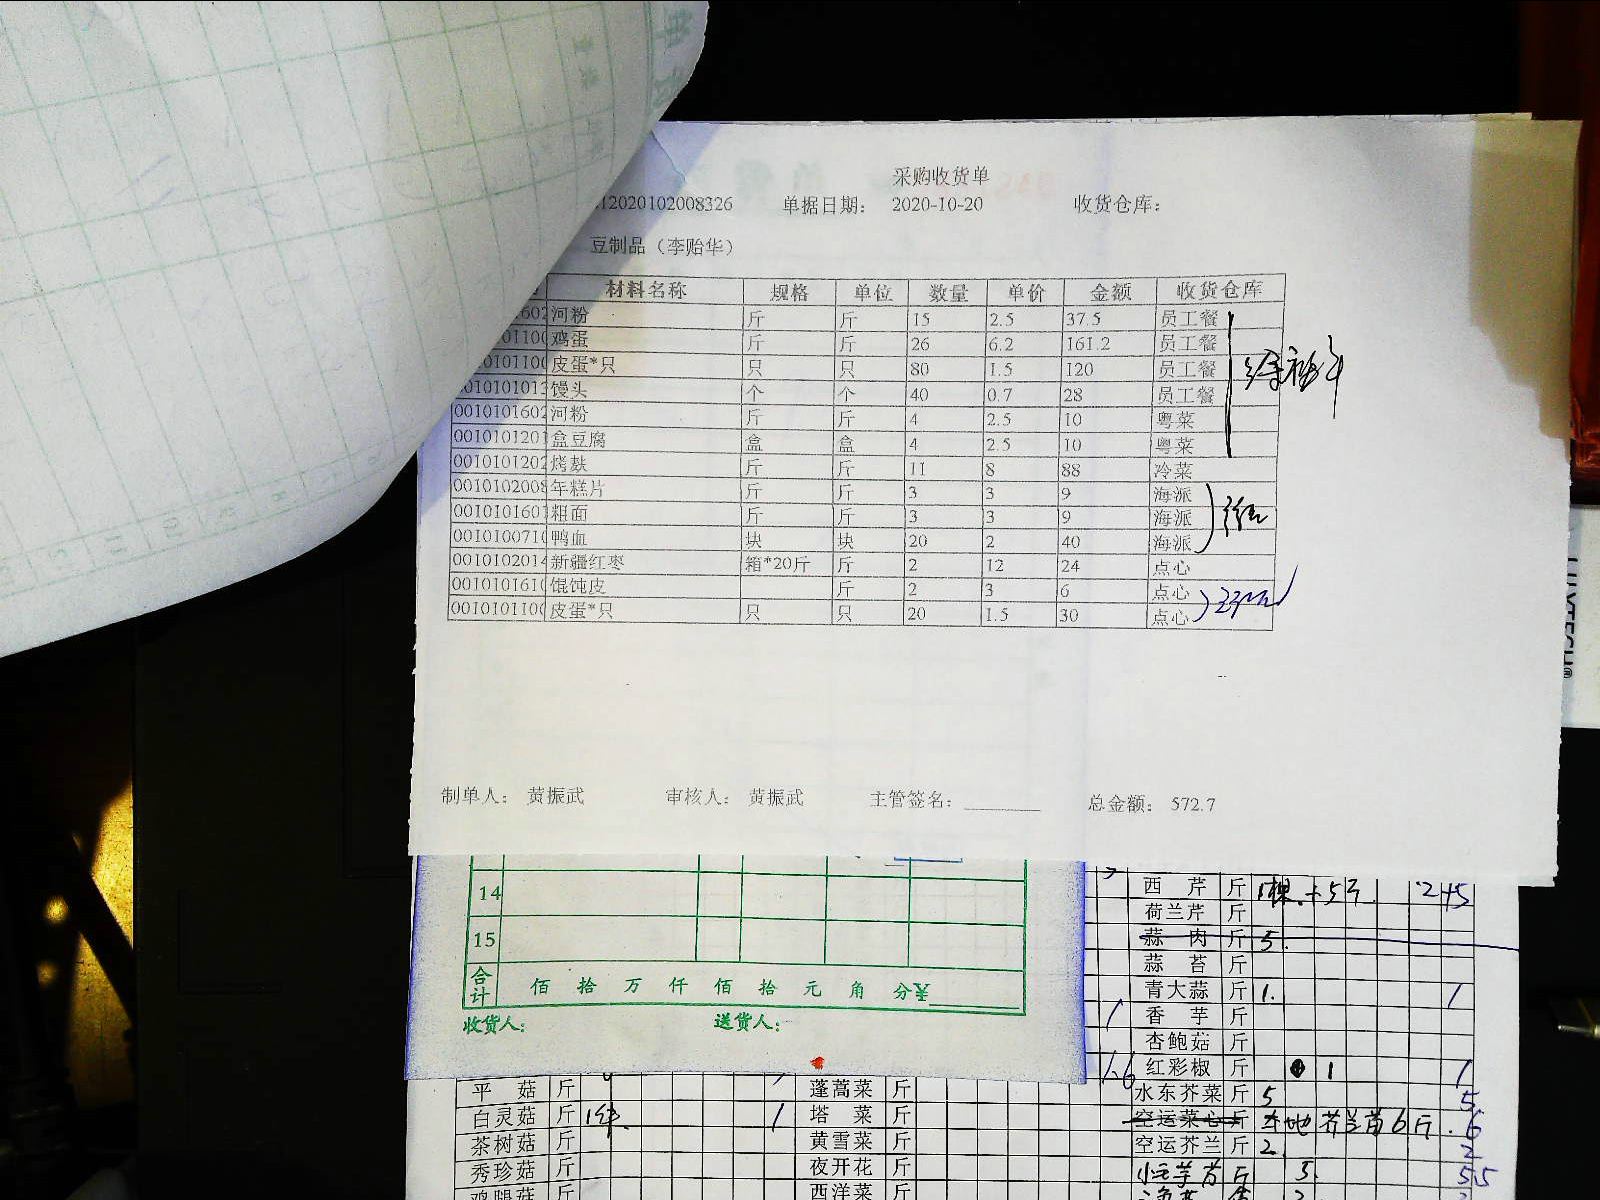 采购收货单
12020102008326 单据日期： 2020-10-20 收货仓库：
豆制品（李贻华）
材料名称 规格 单位 数量 单价 金额 收货仓库
602 河粉 斤 斤 15 2.5 37.5 员工餐
01100 鸡蛋 斤 斤 26 6.2 161.2 员工餐
0101100 皮蛋*只 只 只 80 1.5 120 员工餐
010101013 馒头 个 个 40 0.7 28 员工餐
0010101602 河粉 斤 斤 4 2.5 10 粤菜
0010101201 盒豆腐 盒 盒 4 2.5 10 粤菜
0010101202 烤麸 斤 斤 11 8 88 冷菜
0010102008 年糕片 斤 斤 3 3 9 海派
0010101601 粗面 斤 斤 3 3 9 海派
0010100710 鸭血 块 块 20 2 40 海派
0010102014 新疆红枣 箱*20斤 斤 2 12 24 点心
0010101610 馄饨皮 斤 2 3 6 点心
0010101100 皮蛋*只 只 只 20 1.5 30 点心
制单人： 黄振武 审核人： 黄振武 主管签名： 总金额： 572.7
14
15
合计 佰 拾 万 仟 佰 拾 元 角 分¥
收货人： 送货人：
西芹 斤 1棵+5斤 2+5
荷兰芹 斤
蒜肉 斤 5.
蒜苔 斤
青大蒜 斤 1. 1
香芋 斤
杏鲍菇 斤
1.6 红彩椒 斤 1 1
平菇 斤 蓬蒿菜 斤 水东芥菜 斤 5 5
白灵菇 斤 1件. 1 塔菜 斤 空运菜心 斤 本地芥兰苗6斤. 6
茶树菇 斤 黄雪菜 斤 空运芥兰 斤 2 2
秀珍菇 斤 夜开花 斤 斤 3. 5.5
鸡腿菇 斤 西洋菜 斤
LUXTECH®